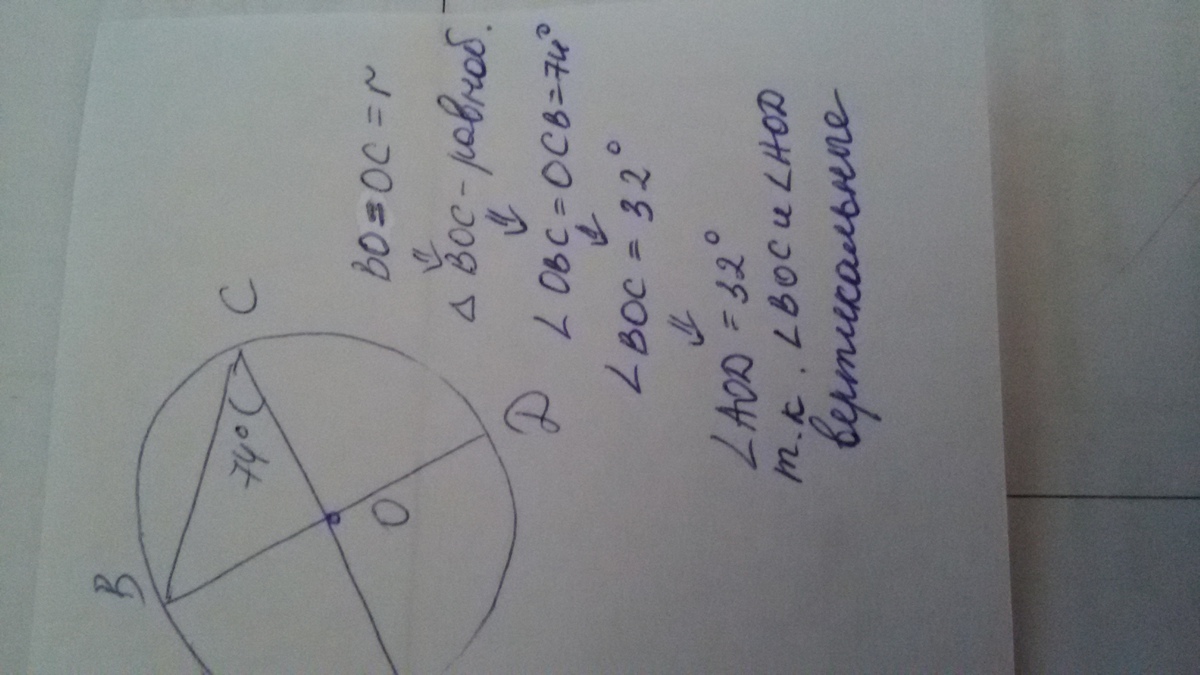 B
C
74°
O
D
BO = OC = r
⇓
△ BOC - равноб.
⇓
∠ OBC = OCB = 74°
⇓
∠ BOC = 32°
⇓
∠AOD = 32°
т.к. ∠BOC и ∠AOD
вертикальные